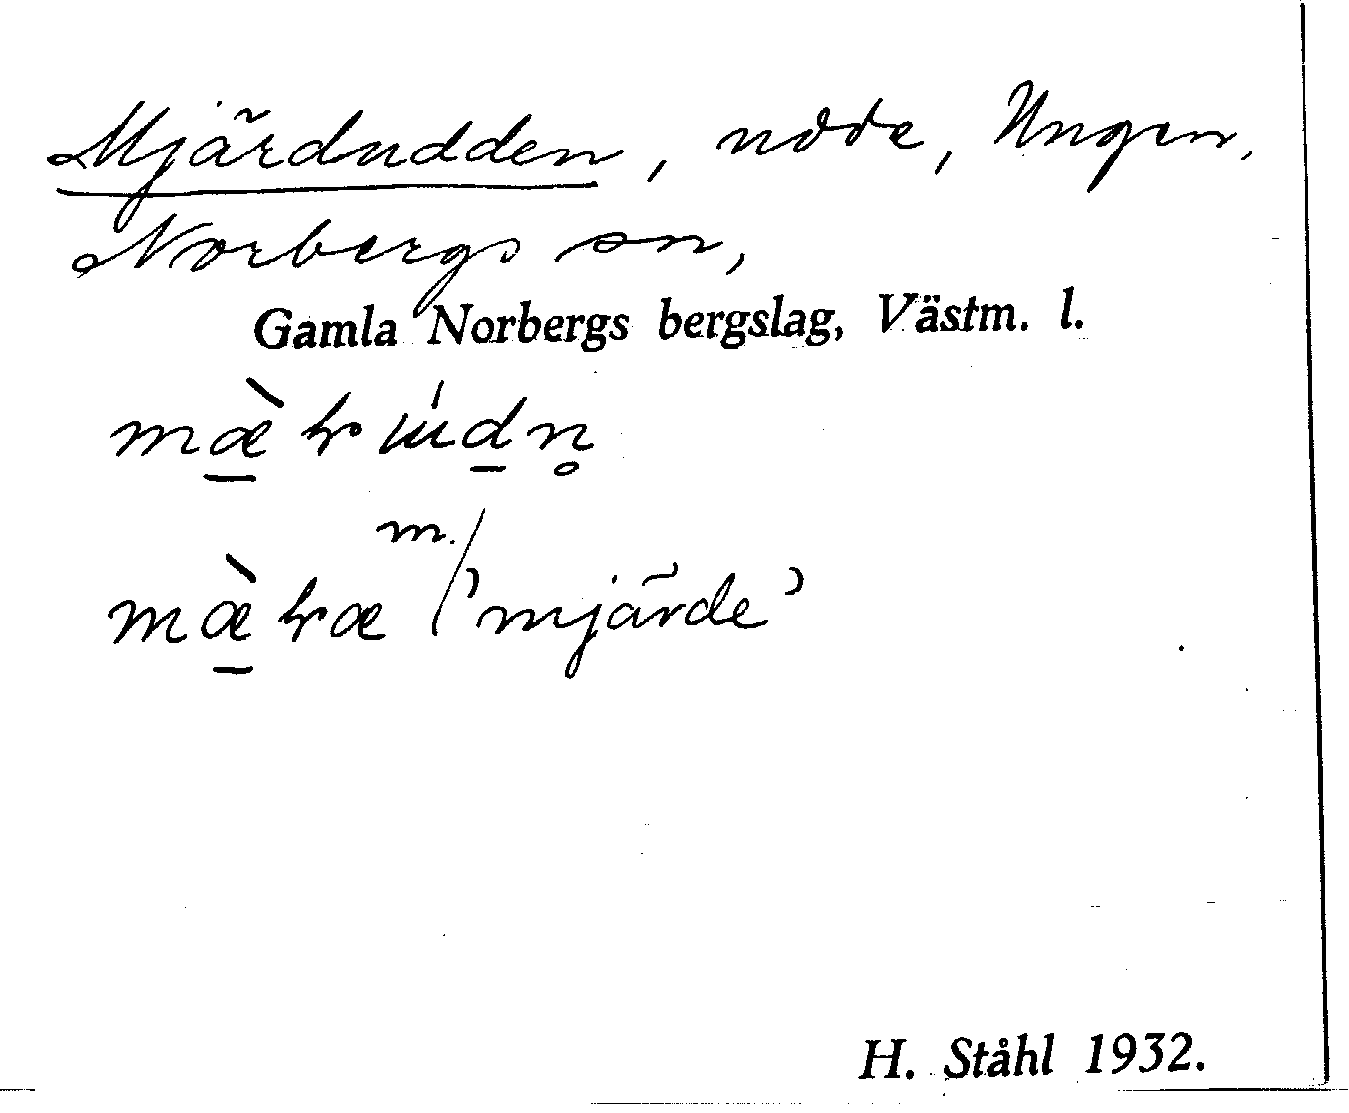 Mjärdudden, udde, Ungen,
Norbergs sn,
Gamla Norbergs bergslag, Västm. l.
m.
'mjärde'
H. Ståhl 1932.